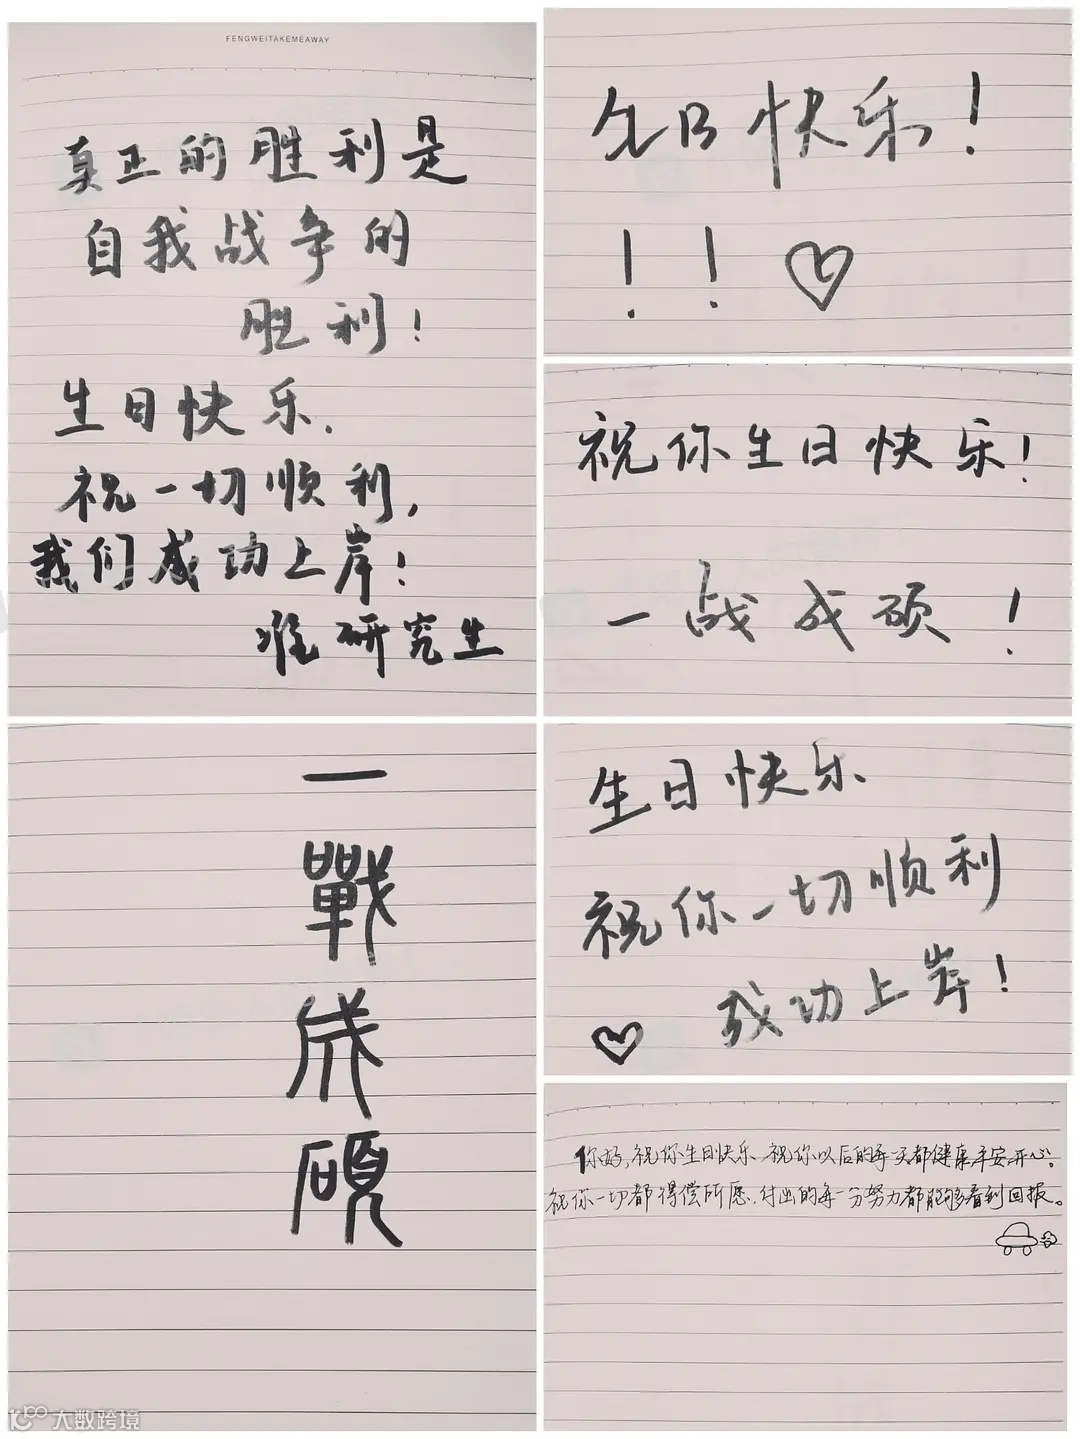 FENGWEITAKEMEAWAY
真正的胜利是
自我战争的
胜利！
生日快乐.
祝一切顺利，
我们成功上岸！
准研究生
生日快乐！
！！
祝你生日快乐！
一战成硕！
一
戰
成
碩
生日快乐
祝你一切顺利
成功上岸！
你好，祝你生日快乐 祝你以后的每一天都健康平安开心。
祝你一切都得偿所愿、付出的每一分努力都能够看到回报。
大数跨境